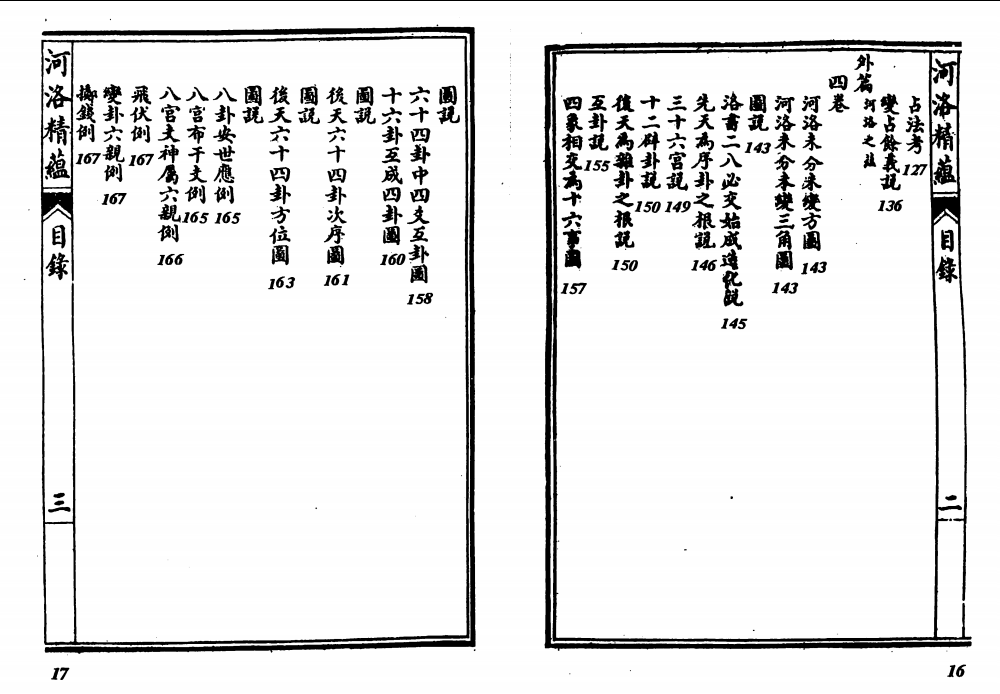 河洛精蘊
目錄
二
占法考 127
變占餘義說 136
外篇 河洛之蘊
四卷
河洛未分未變方圖 143
河洛未分未變三角圖 143
圖說 143
洛書二八必交始成造化說 145
先天為序卦之根說 146
三十六宮說 149
十二辟卦說 150
後天為雜卦之根說 150
互卦說 155
四象相交為十六事圖 157
16
圖說
六十四卦中四爻互卦圖 158
十六卦互成四卦圖 160
圖說
後天六十四卦次序圖 161
圖說
後天六十四卦方位圖 163
圖說
八卦安世應例 165
八宮布干支例 165
八宮支神屬六親例 166
飛伏例 167
變卦六親例 167
擲錢例 167
河洛精蘊
目錄
三
17